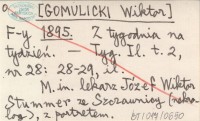 [GOMULICKI Wiktor]
F-y 1895. Z tygodnia na
tydzień. — Tyg. Il. t. 2,
nr 28: 28-29, il.
M. in. lekarz Józef Wiktor
Stummer ze Szczawnicy (nekro-
log), z portretem.